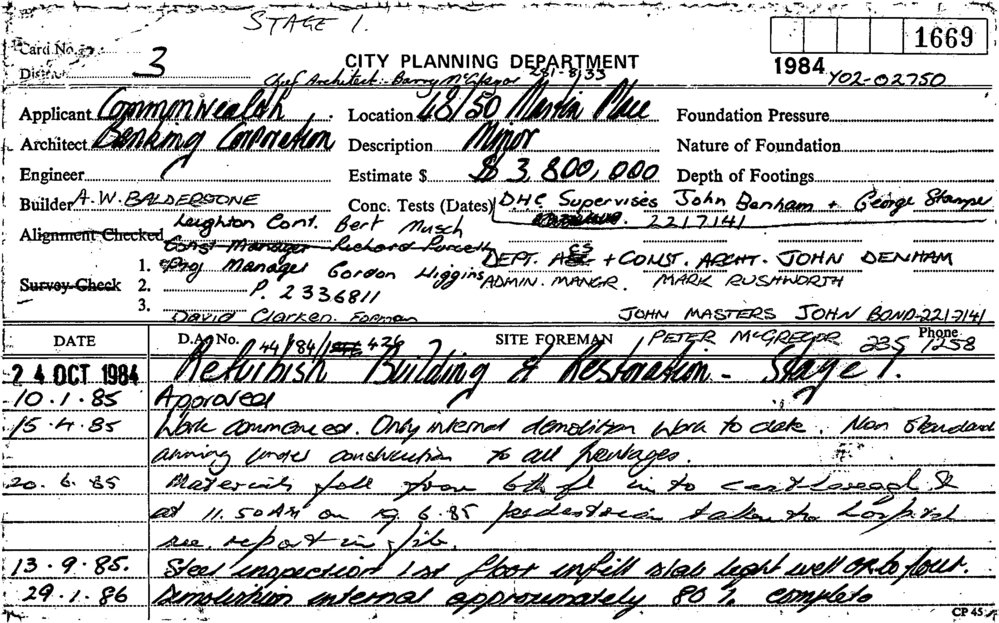 STAGE 1.
Card No.
District 3
CITY PLANNING DEPARTMENT
1669
1984
Y02-02750
Chief Architect: Barry McGregor 231-8133
Applicant Commonwealth
Location 48/50 Martin Place
Foundation Pressure
Architect Banking Corporation
Description Minor
Nature of Foundation
Engineer
Estimate $ $ 3,800,000
Depth of Footings
Builder A.W. BALDERSTONE
Conc. Tests (Dates) DHC Supervises John Denham + George Stamper
2217141
Leighton Cont. Bert Musch
Alignment Checked
Const Manager Richard
DEPT. + CONST. ARCHT. JOHN DENHAM
1. Proj Manager Gordon Higgins
ADMIN. MANGR. MARK RUSHWORTH
Survey Check 2. P. 2336811
3. David Clarken. Foreman
JOHN MASTERS JOHN BOND-221-7141
DATE
D.A. No. 44/84/ 424
SITE FOREMAN PETER McGREGOR
Phone 235 1258
24 OCT 1984 Refurbish Building & Restoration - Stage 1.
10.1.85 Approved
15.4.85 Work commenced. Only internal demolition work to date. Non Standard
awning under construction to all frontages.
20.6.85 Materials fall from 6th fl into Castlereagh St
at 11.50AM on 19.6.85 pedestrian taken to hospital
see report in file.
13.9.85. Steel inspection 1st floor infill slab light well ok to pour.
29.1.86 Demolition internal approximately 80% complete
CP 45